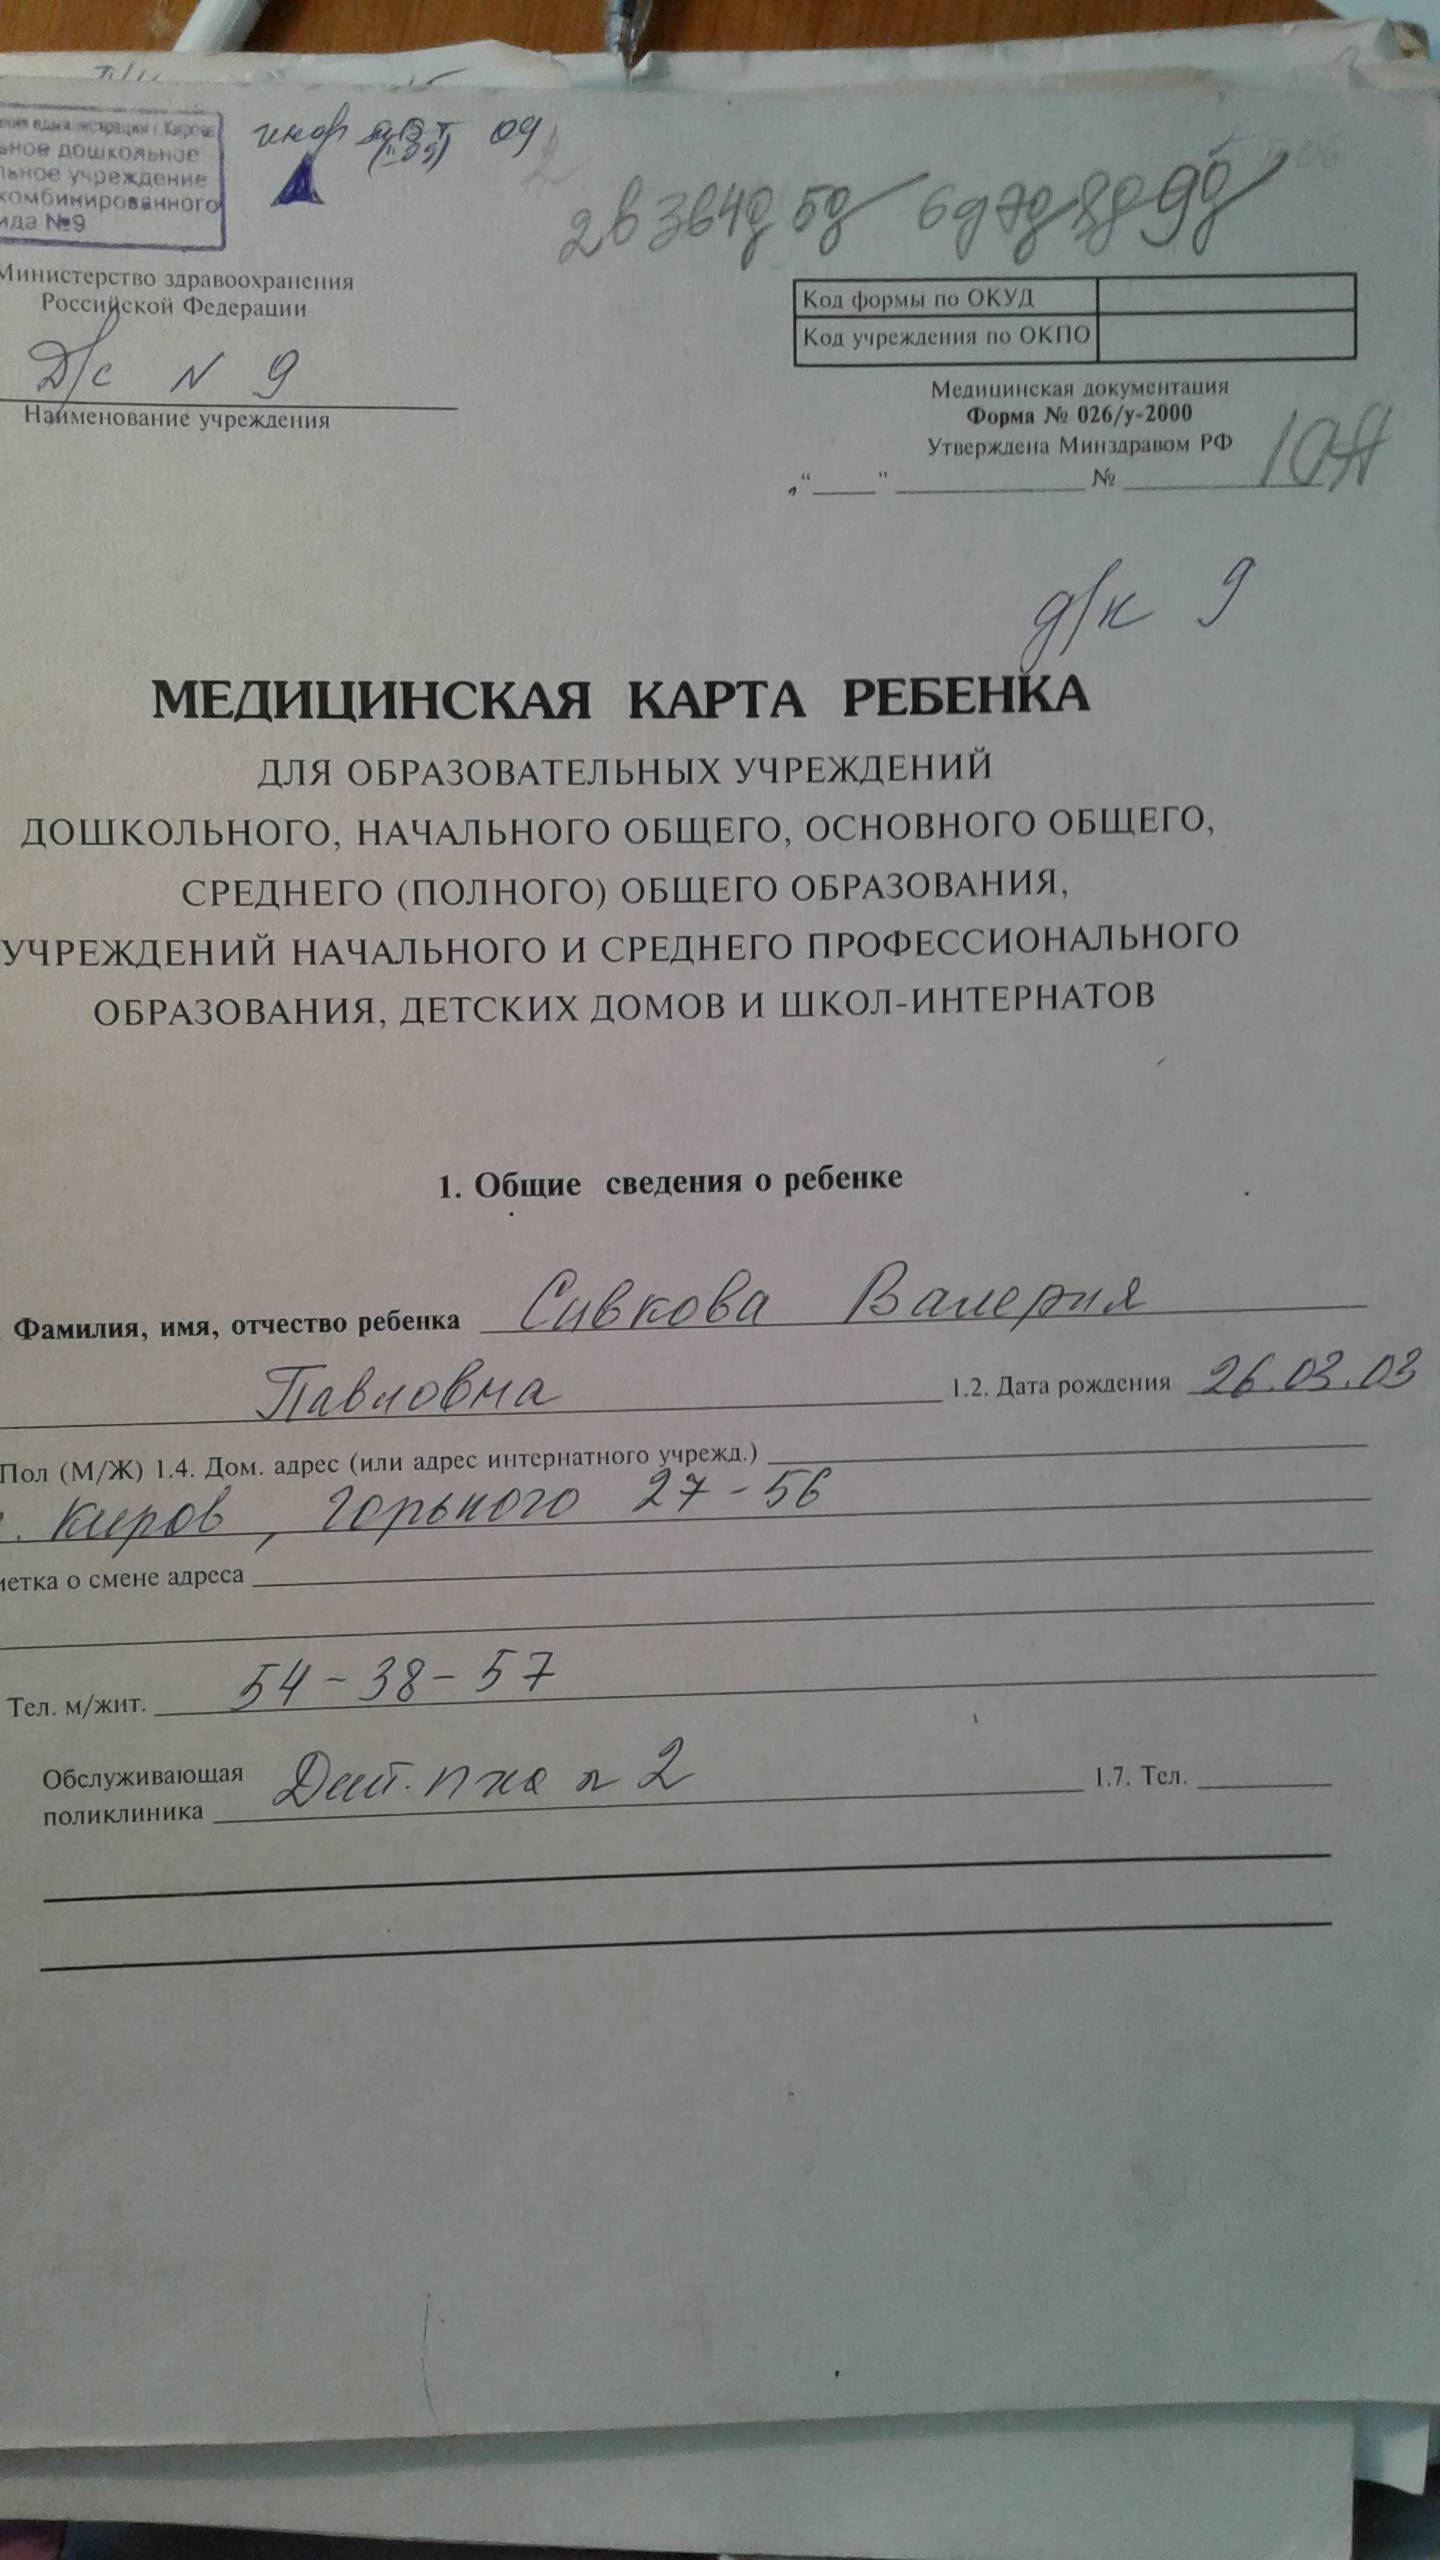 ьное дошкольное
льное учреждение
комбинированного
ида №9
09
2в 3в 4д 5д 6д 7д 8д 9д
Министерство здравоохранения
Российской Федерации
Д/с N 9
Наименование учреждения
Код формы по ОКУД
Код учреждения по ОКПО
Медицинская документация
Форма № 026/у-2000
Утверждена Минздравом РФ
„“ ” № 10А
д/к 9
МЕДИЦИНСКАЯ КАРТА РЕБЕНКА
ДЛЯ ОБРАЗОВАТЕЛЬНЫХ УЧРЕЖДЕНИЙ
ДОШКОЛЬНОГО, НАЧАЛЬНОГО ОБЩЕГО, ОСНОВНОГО ОБЩЕГО,
СРЕДНЕГО (ПОЛНОГО) ОБЩЕГО ОБРАЗОВАНИЯ,
УЧРЕЖДЕНИЙ НАЧАЛЬНОГО И СРЕДНЕГО ПРОФЕССИОНАЛЬНОГО
ОБРАЗОВАНИЯ, ДЕТСКИХ ДОМОВ И ШКОЛ-ИНТЕРНАТОВ
1. Общие сведения о ребенке
Фамилия, имя, отчество ребенка Сивкова Валерия
Павловна 1.2. Дата рождения 26.03.03
Пол (М/Ж) 1.4. Дом. адрес (или адрес интернатного учрежд.)
г. Киров, Горького 27-56
метка о смене адреса
Тел. м/жит. 54-38-57
Обслуживающая
поликлиника Дет. п-ка N 2 1.7. Тел.